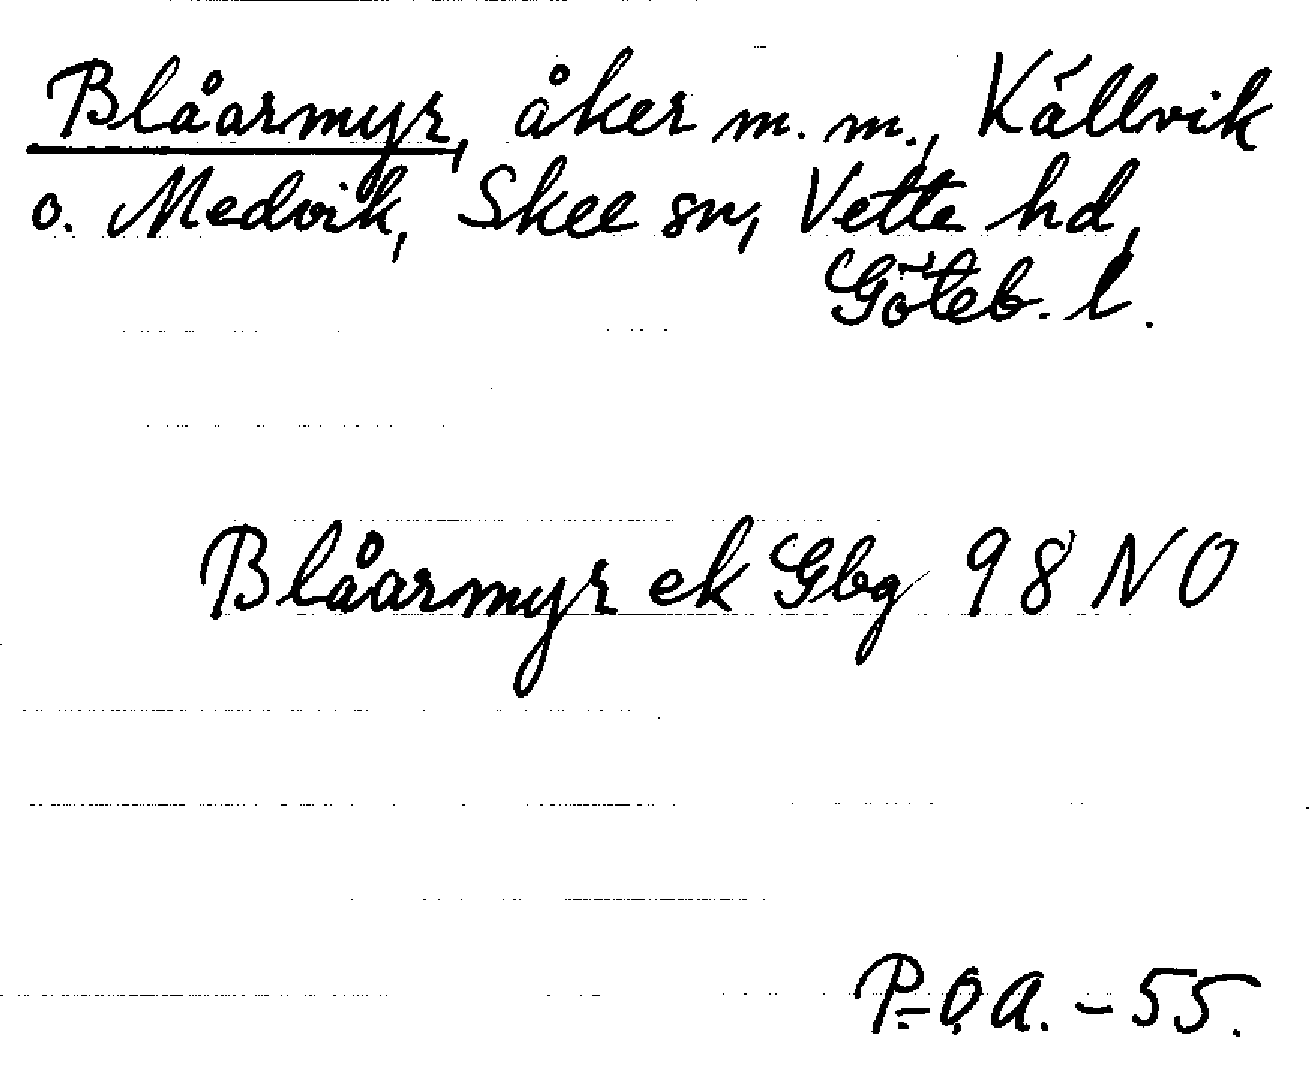 Blåarmyr, åker m.m., Källvik
o. Medvik, Skee sn, Vette hd,
Göteb. l.
Blåarmyr ek Gbg 98 NO
P.-O.A. -55.